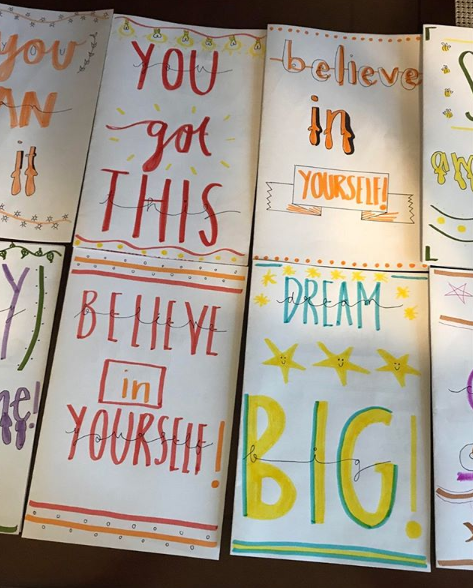 you
AN
it
YOU
got
THIS
believe
in
YOURSELF!
Y
ne!
BELIEVE
in
YOURSELF!
DREAM
BIG!